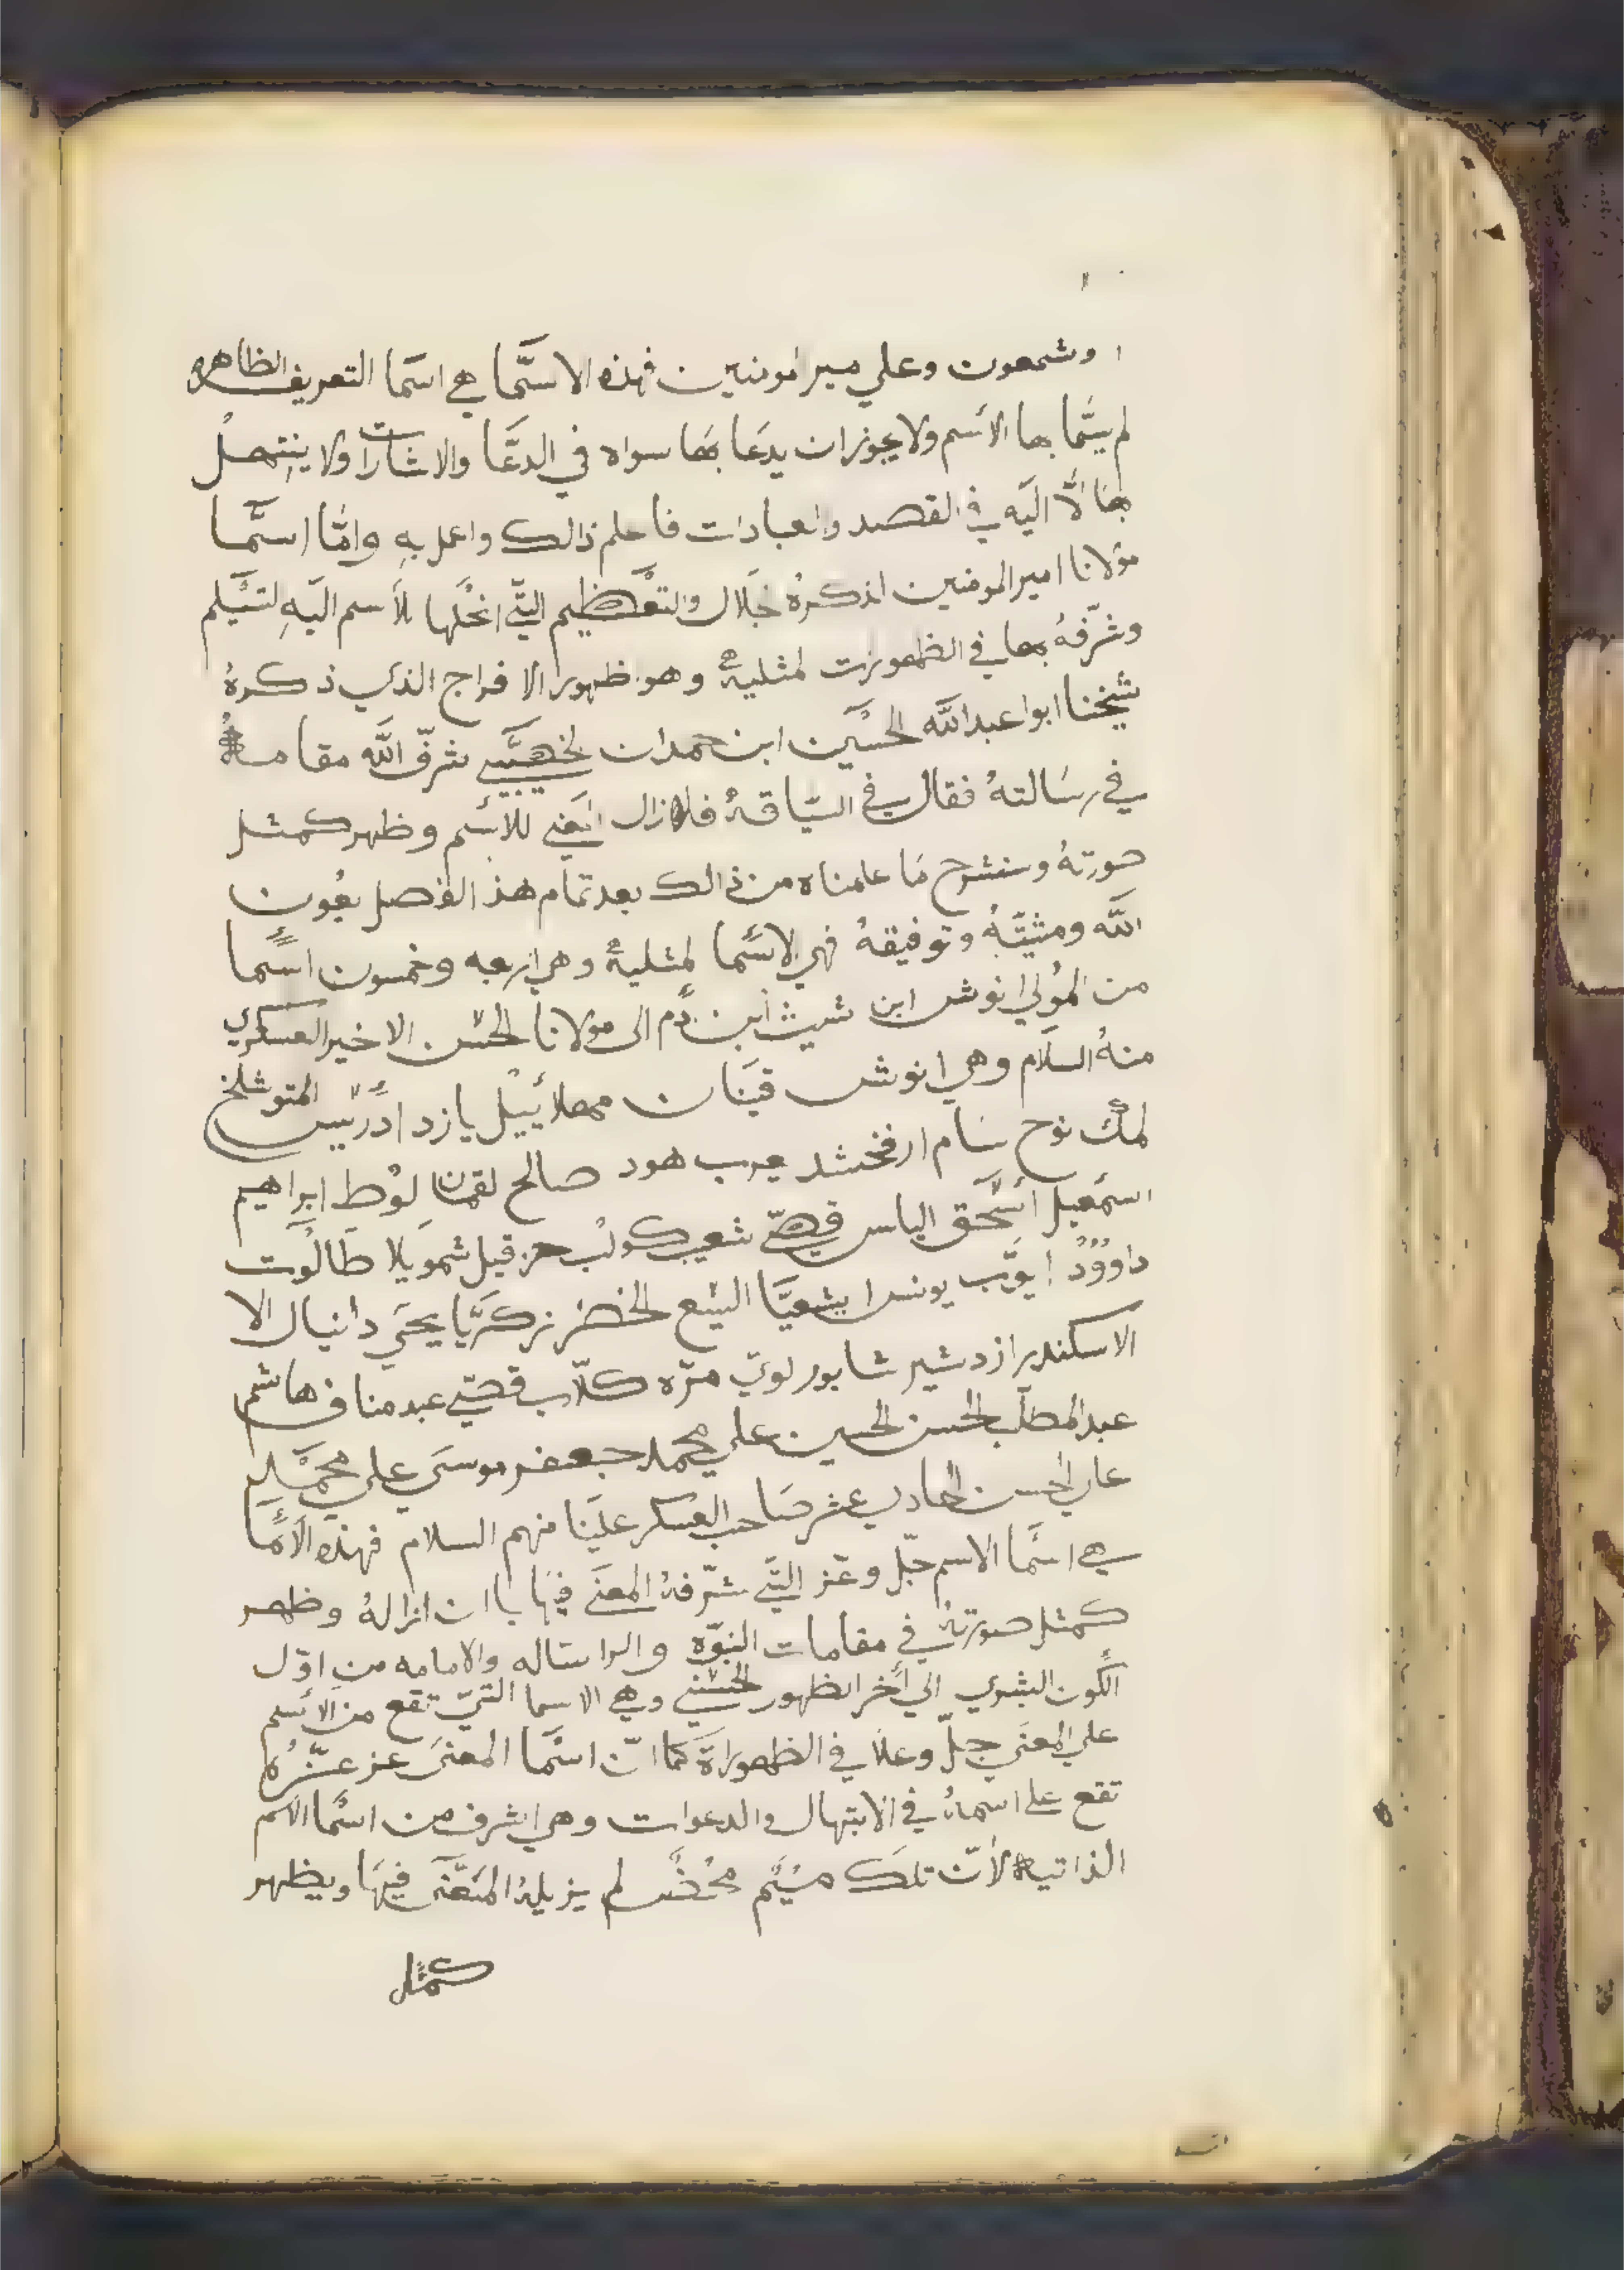 وشمعون وعلي مير المومنين فهذه الاسما هي اسما التعريف الظاهره
لم يتما بها الاسم ولا يجوز ان يدعا بها سواه في الدعا والاشارات ولا ينتهل
بها الا اليه في القصد والعبادات فاعلم ذالك واعمل به واما اسما
مولانا امير المومنين لذكره جلال والتعظيم التي انحلها للاسم اليه لتسلم
وشرفه بها في الظهورات لمثلية وهو ظهور الافراج الذي ذكره
شيخنا ابوا عبد الله الحسين ابن حمدان لخصيبي شرف الله مقامه
في رسالته فقال في السياقة فلازال المعني للاسم وظهر كمثل
صورته وسنشرح ما علمناه من ذالك بعد تمام هذ الفصل بعون
الله ومشيته وتوفيقه فهي الاسما لمثلية وهي اربعه وخمسون اسما
من المولي انوش ابن شيث ابن ادم الى مولانا الحسن الاخير العسكري
منه السلام وهي انوش قينان مهلائييل يازد ادريس المتوشلخ
لمك نوح سام ارفخشد يعرب هود صالح لقمان لوط ابراهيم
اسمعيل اسحق الياس قصي شعيب كولب حزقيل شمويلا طالوت
داوود ايوب يونس ايشعيا اليسع الخضر زكريا يحيى دانيال الا
الاسكندر ازدشير شابور لوي مره كلاب قصي عبد مناف هاشم
عبد المطلب الحسن الحسين علي محمد جعفر موسى علي محمد
علي الحسن الحادي عشر صاحب العسكر علينا منهم السلام فهذه الاما
هي اسما الاسم جل وعز التي شرفه المعنى فيها باان ازاله وظهر
كمثل صورته في مقامات النبوه والراساله والامامه من اول
الكون البشري الي اخر الظهور الحسني وهي الاسما التي تقع من الاسم
علي المعنى جل وعلا في الظهوراة كما ان اسما المعنى عز عزه
تقع على اسماه في الابتهال والدعوات وهي اشرف من اسما الاسم
الذاتيه لان تلك ميم محض لم يزيله المعنى فيها ويظهر
كمثل